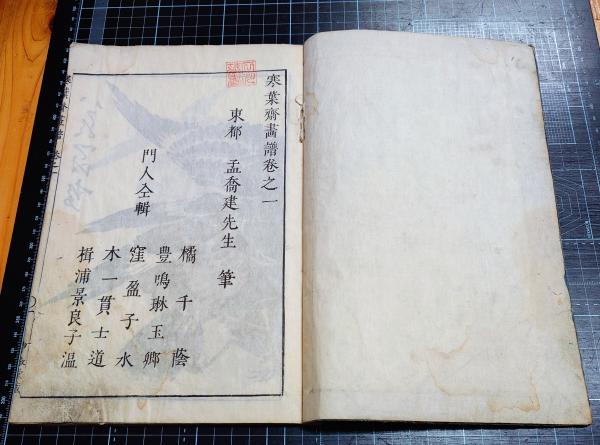 寒葉齋畵譜卷之一
東都 孟喬建先生 筆
門人仝輯
橘千蔭
豊鳴琳玉卿
窪盈子水
木一貫士道
楫浦景良子溫